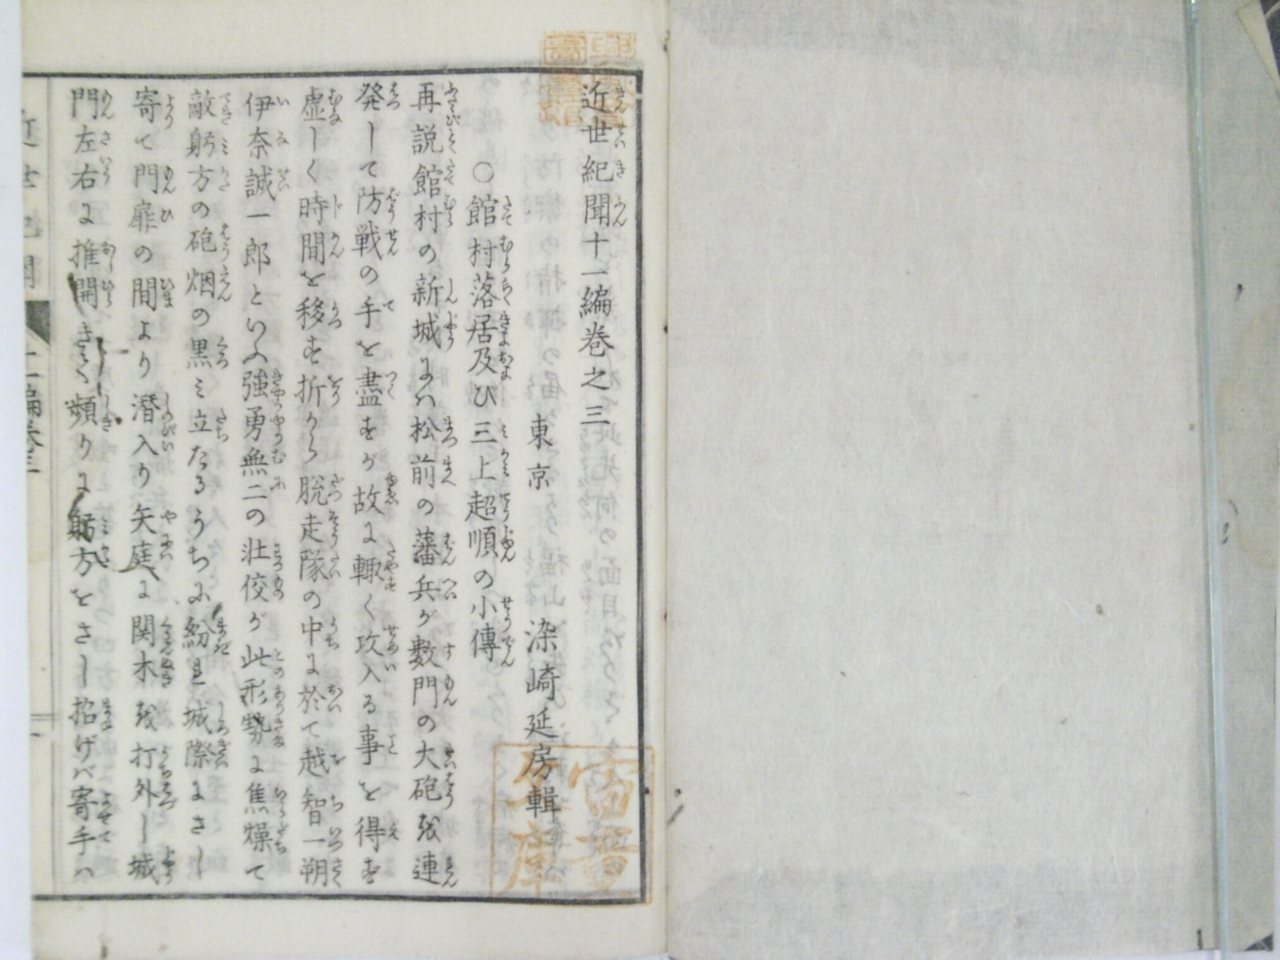 近世紀聞十一編巻之三
東京 染崎延房輯
○館村落居及び三上超順の小傳
再説館村の新城にハ松前の藩兵が数門の大砲を連
発して防戦の手を盡すが故に輙く攻入る事を得ず
虚しく時間を移す折から脱走隊の中に於て越智一朔
伊奈誠一郎といふ強勇無二の壮佼が此形勢に焦燥て
敵躬方の砲烟の黒ミ立たるうちに紛れ城際にさし
寄て門扉の間より潜入り矢庭に関木を打外し城
門左右に推開きて頻りに躬方をさし招げバ寄手ハ